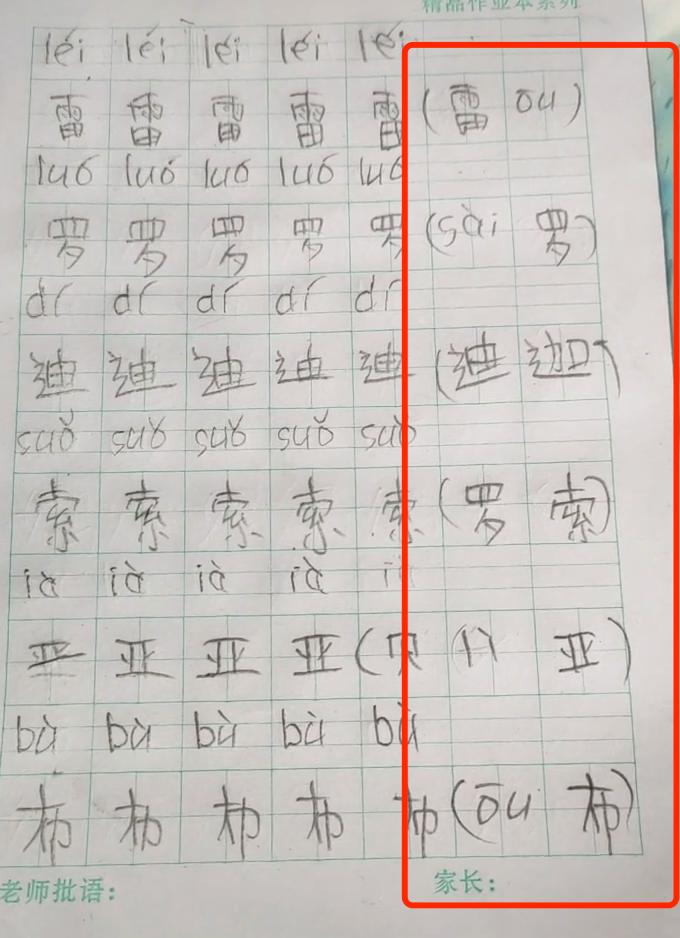 精品作业本系列
léi léi léi léi léi
雷 雷 雷 雷 雷 (雷 ōu)
luó luó luó luó luó
罗 罗 罗 罗 罗 (sài 罗)
dí dí dí dí dí
迪 迪 迪 迪 迪 (迪迦)
suǒ suǒ suǒ suǒ suǒ
索 索 索 索 索 (罗 索)
ià ià ià ià
亚 亚 亚 亚 (贝 亚)
bù bù bù bù bù
布 布 布 布 布 (ōu 布)
老师批语: 家长: